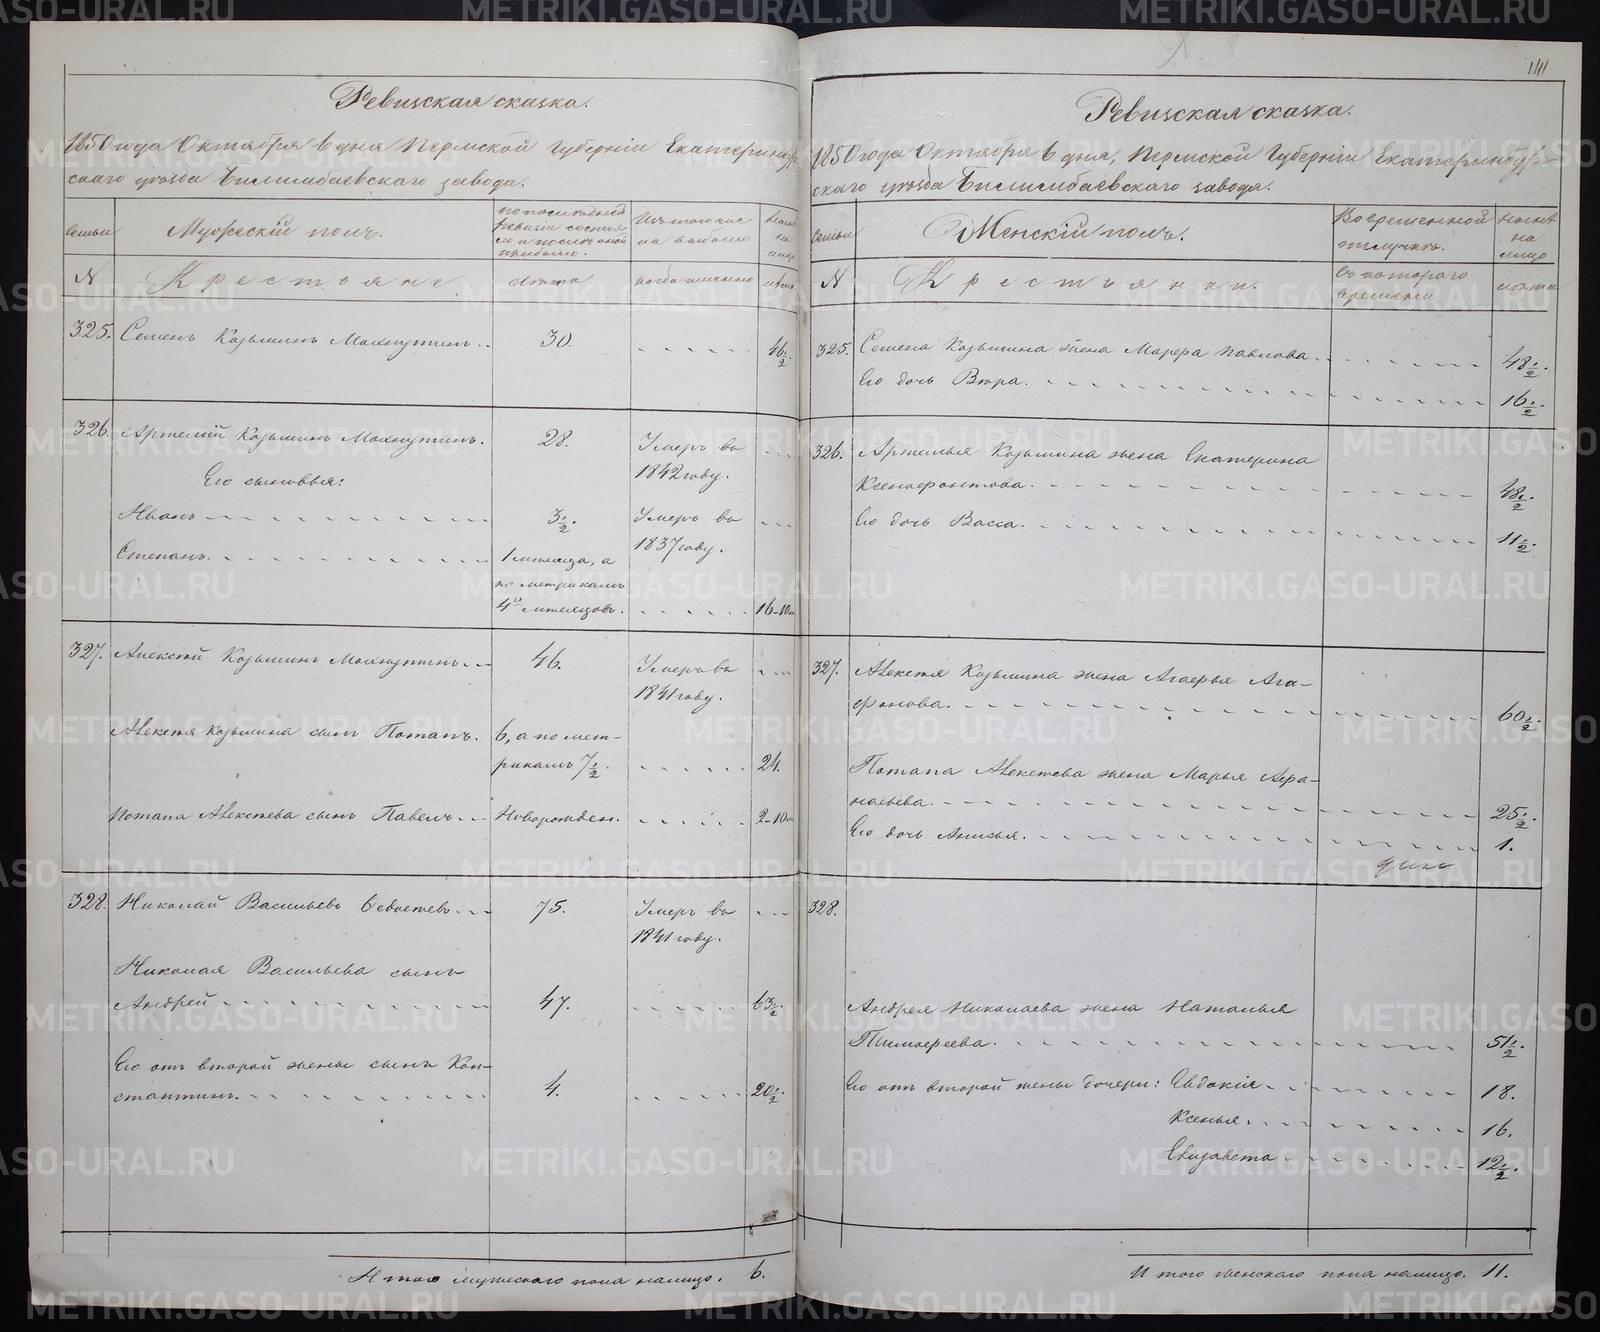 111
Ревизская сказка.
1850 года Октября 6 дня Пермской Губерніи Екатеринбур-
скаго уѣзда Билимбаевскаго завода.
Семьи
Мужескій полъ.
По послѣдней
ревизіи состоя
ло и послѣ оной
прибыло.
Изъ того чис
ла выбыло
Нынѣ
на
лицо
№
Крестьяне
Лѣта
когда именно
лѣта
325. Семенъ Козьминъ Махнутинъ. 30. 46½.
326. Артемій Козьминъ Махнутинъ. 28. Умеръ въ
1842 году.
Его сыновья:
Иванъ 3½. Умеръ въ
1837 году.
Степанъ. 1 мѣсяца, а
по метрикамъ
4х мѣсяцовъ. 16-10м
327. Алексѣй Козьминъ Махнутинъ. 46. Умеръ въ
1841 году.
Алексѣя Козьмина сынъ Потапъ. 6, а по мет-
рикамъ 7½. 24.
Потапа Алексѣева сынъ Павелъ. Новорожден. 2-10м
328. Николай Васильевъ Севастеевъ 75. Умеръ въ
1841 году.
Николая Васильева сынъ
Андрей 47. 63½.
Его отъ второй жены сынъ Кон-
стантинъ. 4. 20½.
Итого мужескаго пола налицо. 6.
Ревизская сказка.
1850 года Октября 6 дня, Пермской Губерніи Екатеринбур-
скаго уѣзда Билимбаевскаго завода.
Семьи
Женскій полъ.
Во временной
отлучкѣ.
Нынѣ
на
лицо
№
Крестьянки.
Съ котораго
времени
лѣта
325. Семена Козьмина жена Марѳа Павлова. 48½.
Его дочь Вѣра. 16½.
326. Артемья Козьмина жена Екатерина
Ксенофонтова. 48½.
Его дочь Васса. 11½.
327. Алексѣя Козьмина жена Агафья Ага-
фонова. 60½.
Потапа Алексѣева жена Марья Афа-
насьева. 25½.
Его дочь Анисья. 1.
328.
Андрея Николаева жена Наталья
Тимофеева. 51½.
Его отъ второй жены дочери: Евдокія. 18.
Ксенья. 16.
Елизавета 12½.
Итого женскаго пола налицо. 11.
METRIKI.GASO-URAL.RU